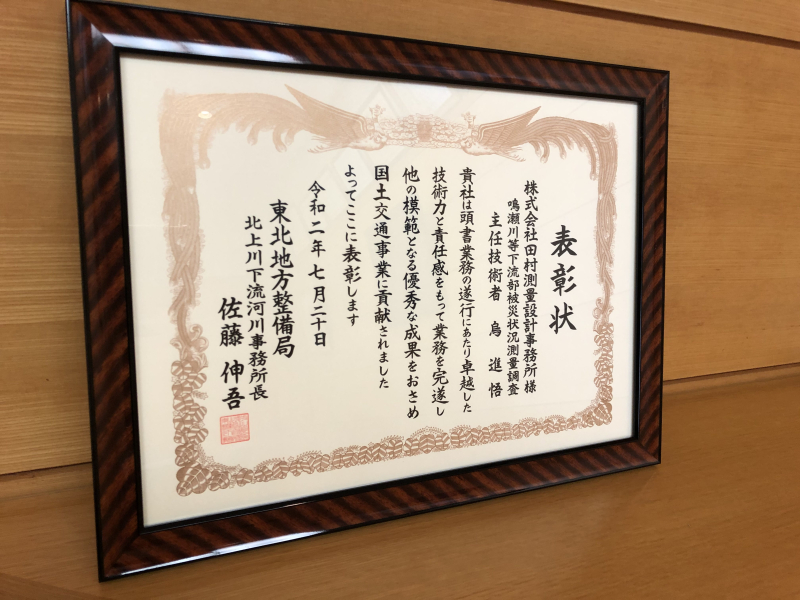 表彰状
株式会社田村測量設計事務所様
鳴瀬川等下流部被災状況測量調査
主任技術者 鳥進悟
貴社は頭書業務の遂行にあたり卓越した
技術力と責任感をもって業務を完遂し
他の模範となる優秀な成果をおさめ
国土交通事業に貢献されました
よってここに表彰します
令和二年七月二十日
東北地方整備局
北上川下流河川事務所長
佐藤伸吾